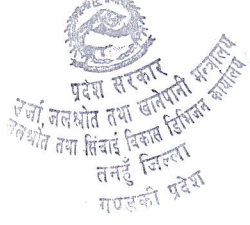 प्रदेश सरकार
उर्जा जलश्रोत तथा खानेपानी मन्त्रालय
जलश्रोत तथा सिंचाई विकास डिभिजन कार्यालय
तनहुँ जिल्ला
गण्डकी प्रदेश